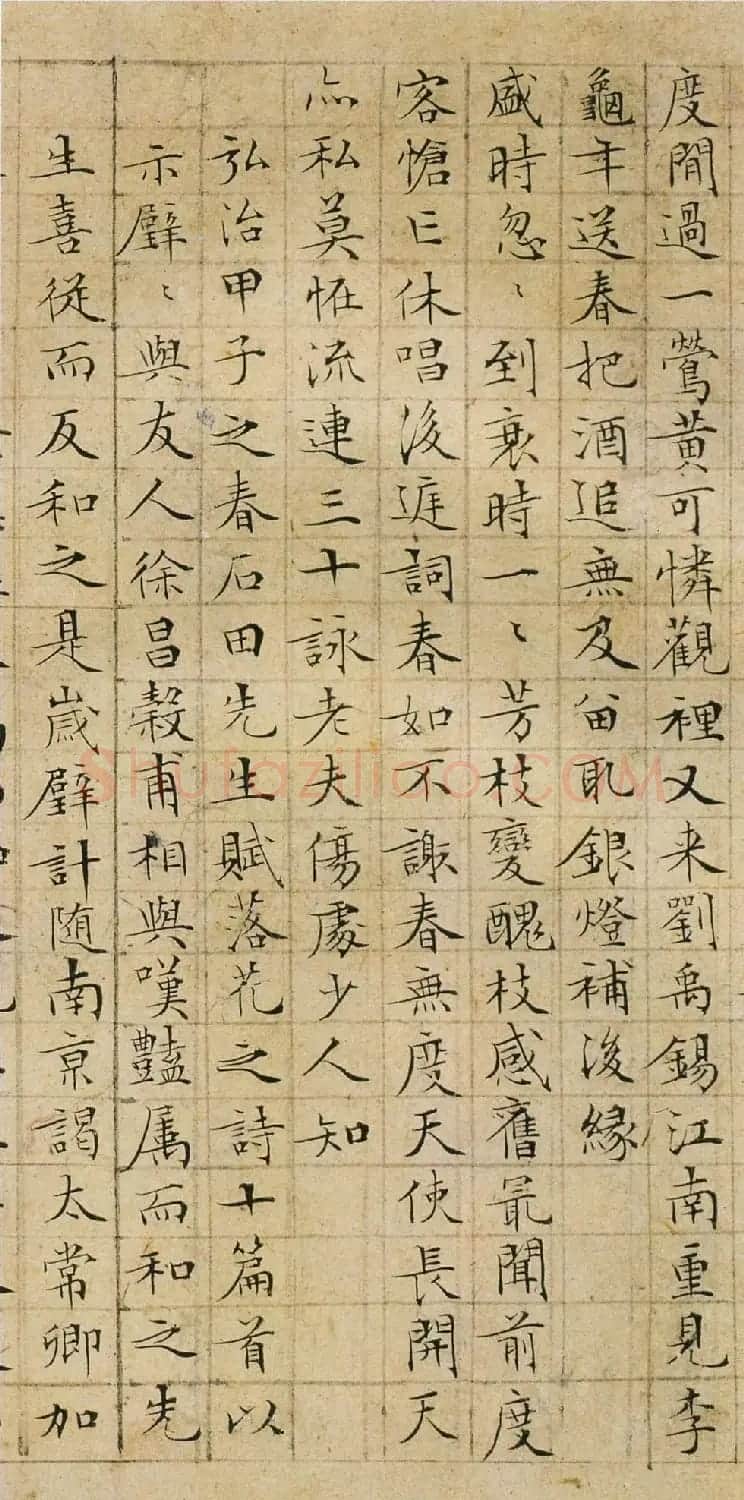 度閒過一鶯黃可憐觀裡又来劉禹錫江南重見李
龜年送春把酒追無及留取銀燈補後緣
盛時忽〻到衰時一〻芳枝變醜枝感舊最聞前度
客愴亡休唱後庭詞春如不謝春無度天使長開天
亦私莫恠流連三十詠老夫傷處少人知
弘治甲子之春石田先生賦落花之詩十篇首以
示璧〻與友人徐昌榖甫相與嘆豔属而和之先
生喜從而反和之是歲璧計随南京謁太常卿加
shufaziliao.COM